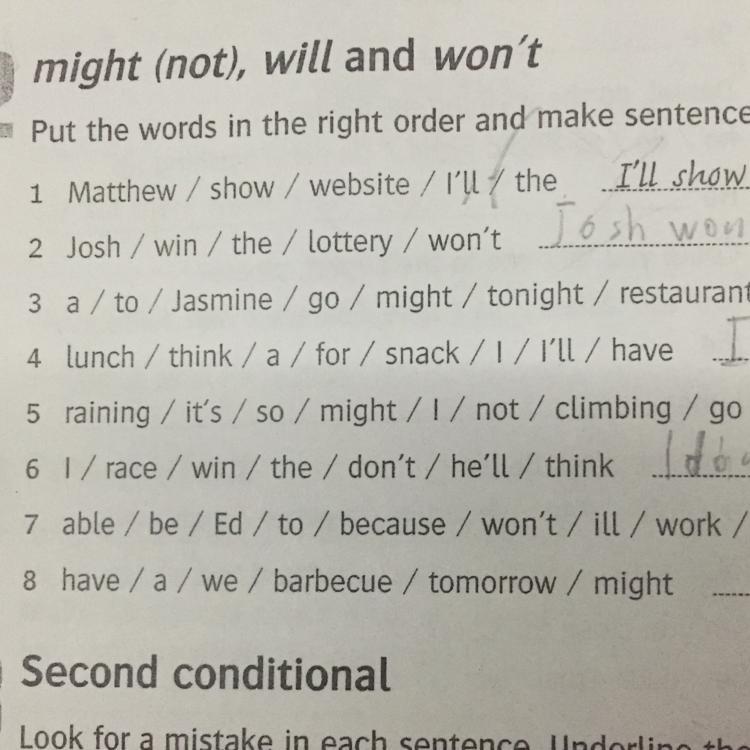 might (not), will and won't
Put the words in the right order and make sentence
1 Matthew / show / website / I'll / the I'll show
2 Josh / win / the / lottery / won't Josh won
3 a / to / Jasmine / go / might / tonight / restaurant
4 lunch / think / a / for / snack / I / I'll / have I
5 raining / it's / so / might / I / not / climbing / go
6 I / race / win / the / don't / he'll / think I don
7 able / be / Ed / to / because / won't / ill / work /
8 have / a / we / barbecue / tomorrow / might
Second conditional
Look for a mistake in each sentence. Underline the